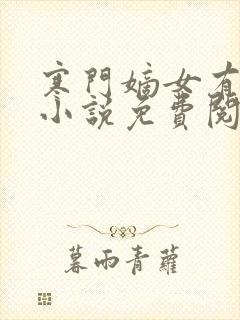 寒門嫡女有
小說免費閱
暮雨青蘿